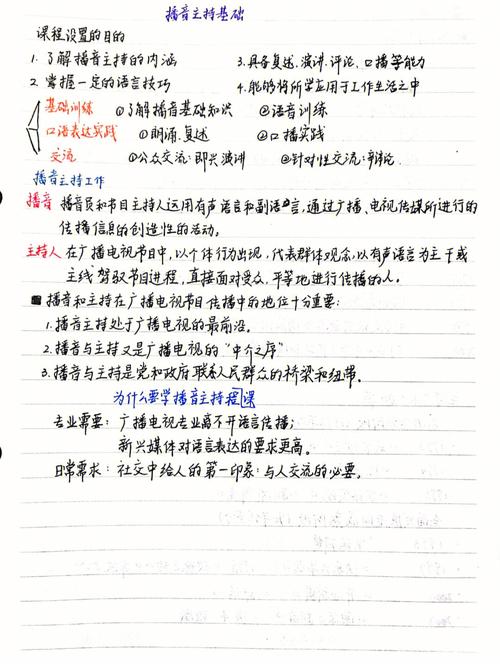 播音主持基础
课程设置的目的
1. 了解播音主持的内涵 3.具备复述、演讲、评论、口播等能力
2. 掌握一定的语言技巧 4.能够将所学应用于工作生活之中
基础训练 ①了解播音基础知识 ②语音训练
口语表达实践 ①朗诵、复述 ②口播实践
交流 ①公众交流:即兴演讲 ②针对性交流:辩论.
播音主持工作
播音 播音员和节目主持人运用有声语言和副语言,通过广播、电视传媒所进行的
传播信息的创造性的活动。
主持人 在广播电视节目中,以个体行为出现,代表群体观念,以有声语言为主干或
主线驾驭节目进程,直接面对受众,平等地进行传播的人。
播音和主持在广播电视节目传播中的地位十分重要:
1.播音主持处于广播电视的最前沿。
2.播音与主持又是广播电视的“中介之序”
3.播音与主持是党和政府联系人民群众的桥梁和纽带。
为什么要学播音主持程课
专业需要: 广播电视专业离不开语言传播;
新兴媒体对语言表达的要求更高。
日常需求: 社交中给人的第一印象:与人交流的必要。